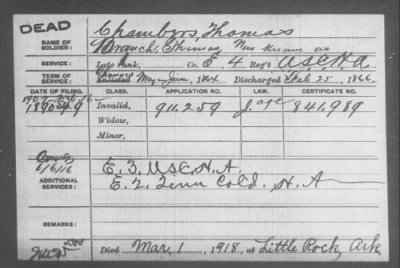 DEAD
Chambers, Thomas
NAME OF SOLDIER:
Branch, Thomas Now known as
SERVICE:
Late rank, Co. E, 4 Reg't U.S.C.H.A.
TERM OF SERVICE:
Enlisted June, 1864 Discharged Feb. 25, 1866.
DATE OF FILING. CLASS. APPLICATION NO. LAW. CERTIFICATE NO.
Invalid, 911.259 age 841,989
Widow,
Minor,
6/6/16
ADDITIONAL SERVICES:
E. 3. U.S.C.H.A.
E. 2. Tenn Cold. H.A
REMARKS:
Died Mar. 1, 1918, at Little Rock, Ark